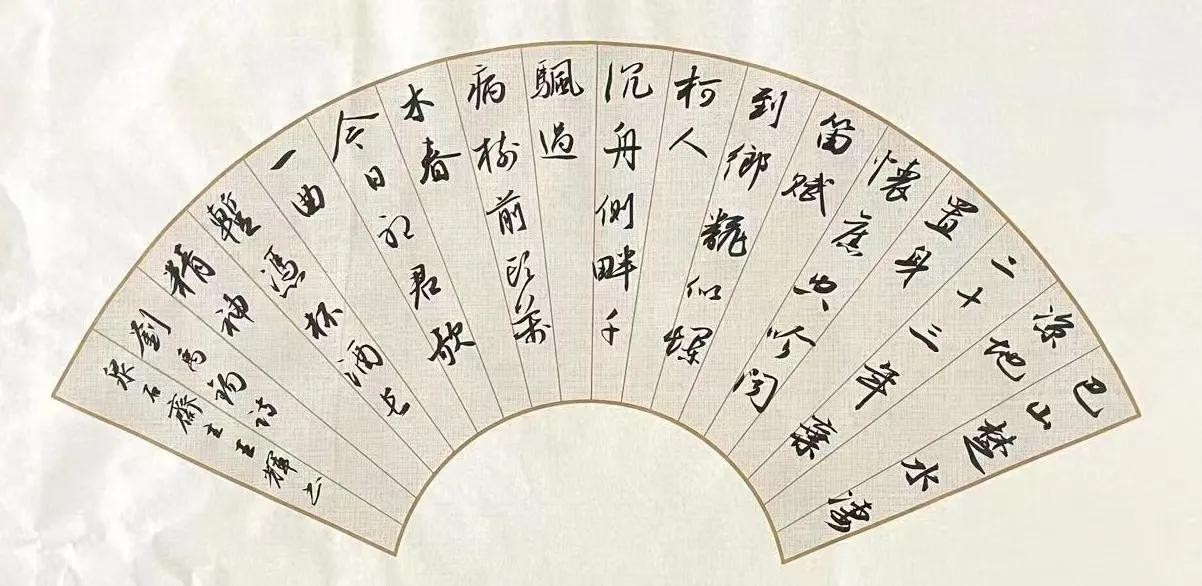 巴山楚水淒
涼地
二十三年棄
置身
懷舊空吟聞
笛賦
到鄉翻似爛
柯人
沉舟側畔千
颿過
病樹前頭萬
木春
今日聽君歌
一曲
暫憑杯酒長
精神
劉禹錫詩
泉石齋主王輝書